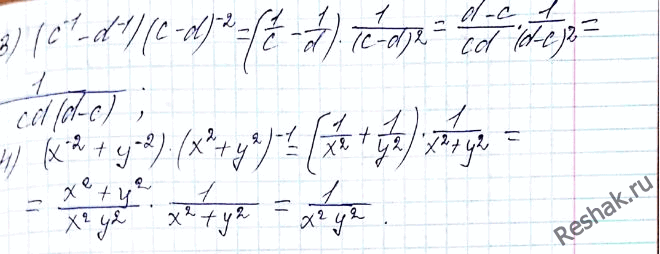 3) (c⁻¹ - d⁻¹)(c-d)⁻² = (1/c - 1/d) · 1/(c-d)² = (d-c)/(cd) · 1/(d-c)² =
1/(cd(d-c)) ;
4) (x⁻² + y⁻²) · (x² + y²)⁻¹ = (1/x² + 1/y²) · 1/(x² + y²) =
= (x² + y²)/(x² y²) · 1/(x² + y²) = 1/(x² y²) .
Reshak.ru